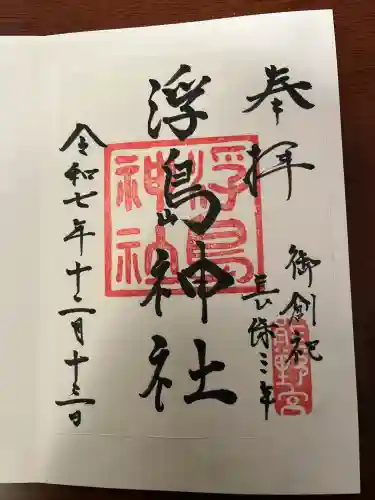 奉拝
御創祀
長保三年
浮島神社
令和七年十二月十三日
浮島
神社
熊野宮